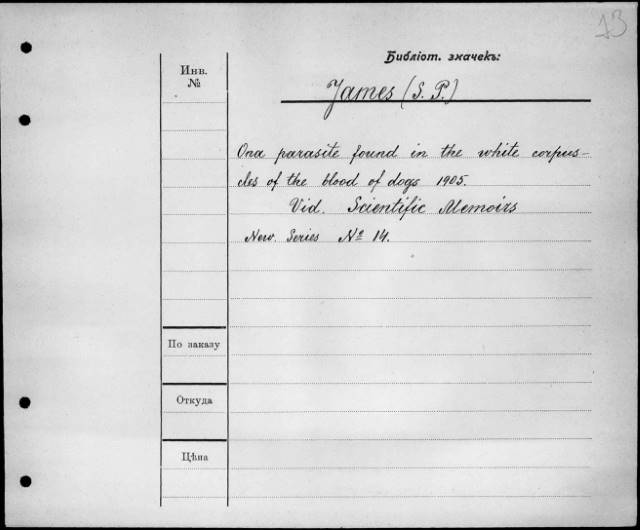 13
Библіот. значекъ:
Инв.
№
James (S. P.)
Ona parasite found in the white corpus-
cles of the blood of dogs 1905.
Vid. Scientific Memoirs
New. Series № 14.
По заказу
Откуда
Цѣна